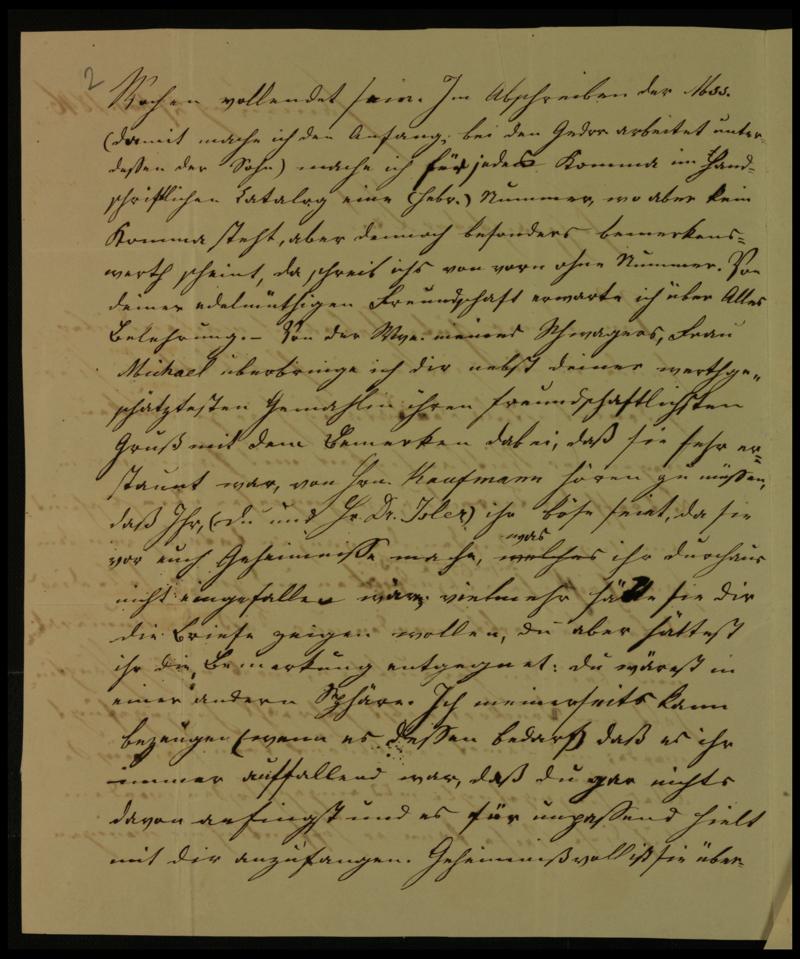 2
Wochen vollendet sein. Im Abschreiben der Mss.
(damit mache ich den Anfang, bei den Gedr. arbeitet unter-
deßen der Sohn) mache ich für jedes Komma im Hand-
schriftlichen Catalog eine (hebr.) Nummer, wo aber kein
Komma steht, aber dennoch besonders bemerkens-
werth scheint, da schreib ichs von vorn ohne Nummer. Von
deiner edelmüthigen Freundschaft erwarte ich über Alles
Belehrung. – Von der Wwe. meines Schwagers, Frau
Michael überbringe ich dir nebst deiner werthge-
schätztesten Gemahlin ihren freundschaftlichsten
Gruß mit dem Bemerken dabei, daß sie sehr er-
staunt war, von Hrn. Kaufmann hören zu müßen,
daß Ihr, (du und Hr. Dr. Isler) ihr böse seiet, da sie
vor euch Geheimniße mache, welches was ihr durchaus
nicht eingefallen wäre, vielmehr hätte sie dir
die Briefe zeigen wollen, du aber hättest
ihr die Bemerkung entgegnet: du wärest in
einer andern Sphäre. Ich meinerseits kann
bezeugen (wenn es deßen bedarf) daß es ihr
immer auffallend war, daß du gar nichts
davon anfingst und es für unpaßend hielt
mit dir anzufangen. Geheimnißvoll ist sie über-